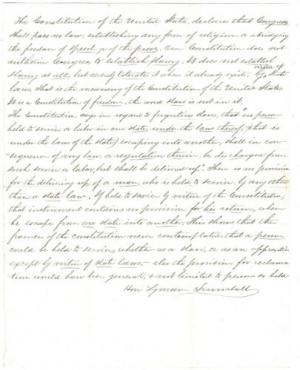 The Constitution of the United State, declares that Congress
shall pass no law, establishing any form of religion or abridging
the freedom of speech, or of the press, Our Constitution does not
authorize Congress to establish slavery. It does not establish
slavery at all, but merely tolerates it when it already exists
laws. That is the meaning of the Constitution of the United States
It is a Constitution of freedom, the word slave is not in it.
The Constitution says in regard to fugitives from, that "no person
held to service or labor in one state, under the laws thereof, that is
under the laws of the state, escaping into another, shall in con-
sequence of any law or regulation therein be discharged from
such service or labor, but shall be delivered up." There is no provision
for the delivering up of a man, who is held to service by any other
than a state law. If held to service by virtue of the Constitution,
that instrument contains no provision for his return, when
he escapes from one state into another. This shows that the
framers of the constitution never contemplated that a person
could be held to service, whether as a slave, or as an apprentice
except by virtue of state laws, else the provision for reclama-
tion would have been general, & not limited to persons so held
Hon Lyman Trumbull